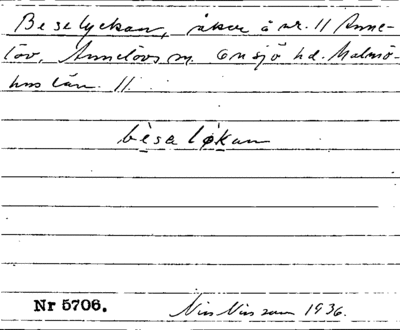 Beselyckan, åker å nr. 11 Anne-
löv, Annelövs sn. Onsjö hd. Malmö-
hus län. 11.
bèsa løkan
Nr 5706.
Nils Nilsson 1936.